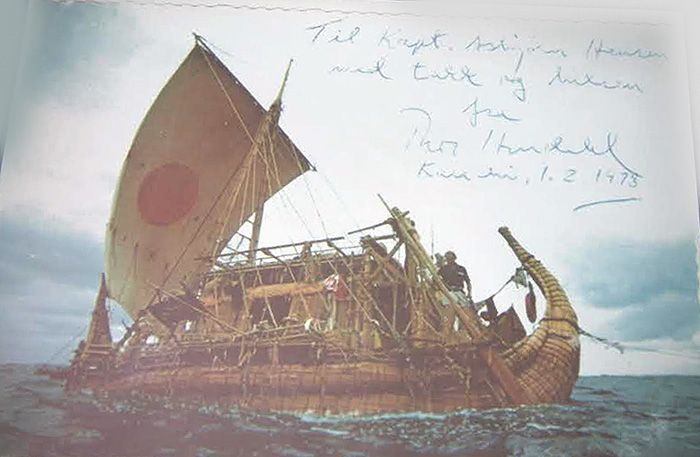 Til Kapt. Asbjørn Hensen
med takk og hilsen
fra
Thor Heyerdahl
1.2 1973